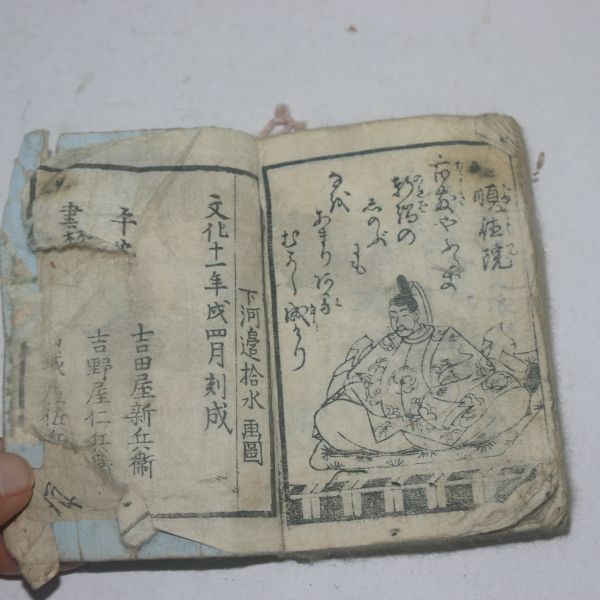 順徳院
百敷やふるき
軒端の
しのぶ
にも
なを
あまりある
むかし成けり
下河邉拾水画圖
文化十一年戌四月刻成
平
書
吉田屋新兵衛
吉野屋仁兵衛
城屋佐兵